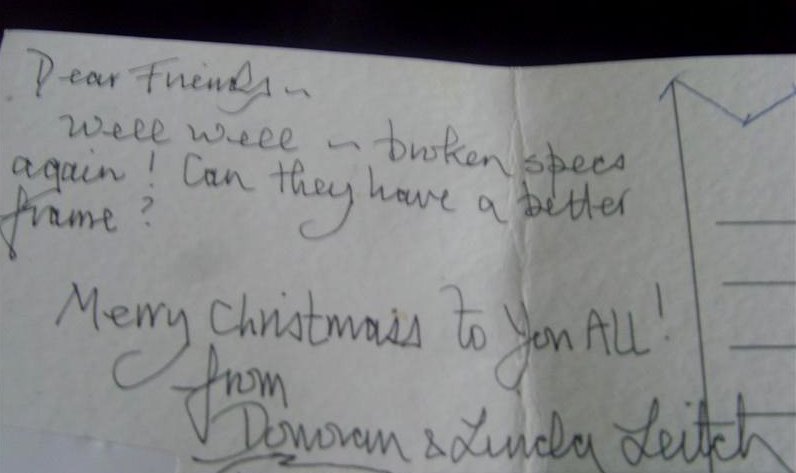 Dear Friends ~
Well well ~ broken specs
again! Can they have a better
frame?
Merry Christmass to you ALL!
from
Donovan & Linda Leitch